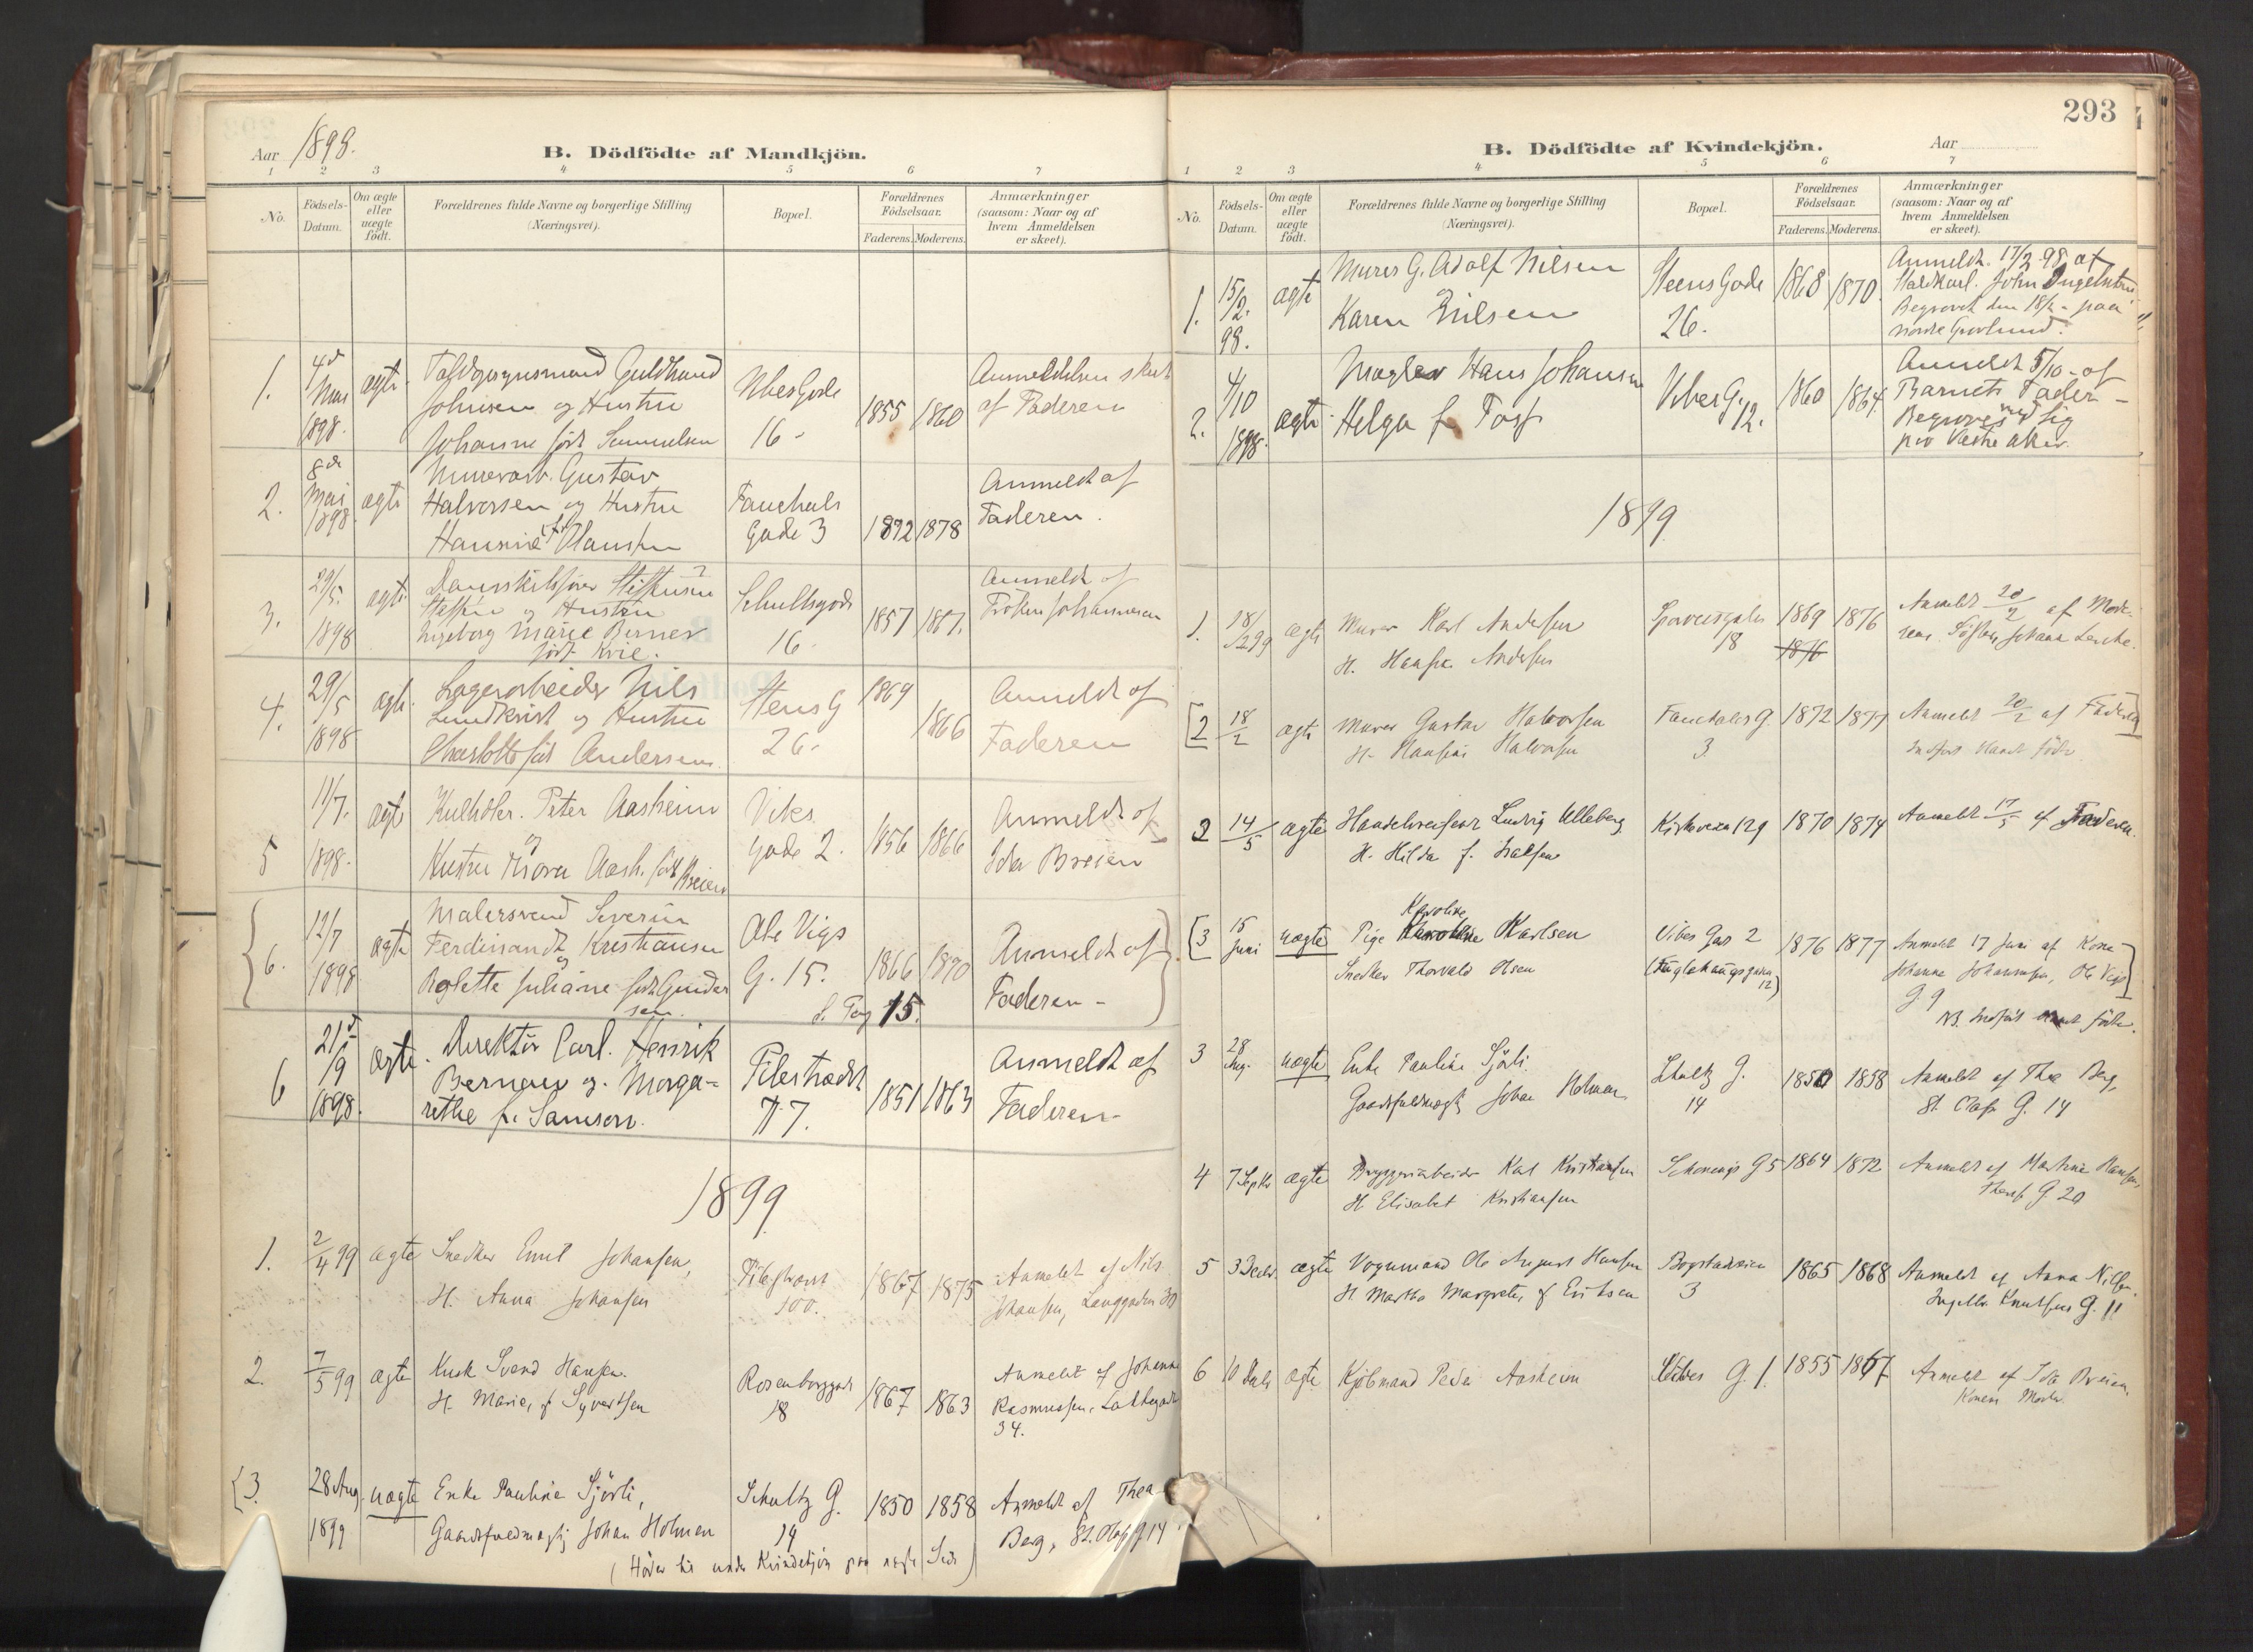 293
Aar 1898.
B. Dödfödte af Mandkjön.
1 2 3 4 5 6 7
No.
Födsels-Datum.
Om ægte eller uægte födt.
Forældrenes fulde Navne og borgerlige Stilling
(Næringsvei).
Bopæl.
Forældrenes Födselsaar.
Faderens. Moderens.
Anmærkninger
(saasom: Naar og af
hvem Anmeldelsen
er skeet).
1. 4d Mai 1898. ægte.
Johnsen og Hustru
Johanne født Samuelsen
Vibes Gade
16 -
1855 1860
Anmeldelsen skeet
af Faderen
2. 8de Mai 1898 ægte
Murerarb. Gustav
Halvorsen og Hustru
Hansine
Fauchals
Gade 3
1872 1878
Anmeldt af
Faderen.
3. 29/5. 1898 ægte
og Hustru
Ingeborg Marie Berner
født Kvie.
Schultsgade
16 -
1857 1867.
Anmeldt af
Frøken Johannesen
4. 29/5 1898 ægte.
Lagerarbeider Nils
Lundkvist og Hustru
Charlotte født Andersen.
Stens G
26 -
1869 1866
Anmeldt af
Faderen
5 11/7. 1898. ægte
Kulhdler. Peter Aasheim
og
Hustru Thora Aash. født Breien
Vibes
gade 2.
1856 1866
Anmeldt af
Ida Breien
6. 12/7 1898 ægte
Malersvend Severin
Ferdinandt Kristiansen
og
Juliane født Gunder
sen.
Ole Vigs
G. 15.
1866 1870
Anmeldt af
Faderen -
15.
6 21/9 1898. ægte.
Direktör Carl. Henrik
Berner og. Marga-
rethe f. Samson.
Pilestrædet
77.
1851 1863
Anmeldt af
Faderen -
1899
1. 2/4 99 ægte
Snedker Emil Johansen,
H. Anna Johansen
Pilestræde
100.
1867 1875
Anmeldt af Nils
Johansen, Langgaden 30
2. 7/5 99 ægte
Kusk Svend Hansen.
H. Marie, f Syvertsen
Rosenborggade
18
1867 1863
Anmeldt af Johanne
Rasmussen, Lakkegade
34.
3. 28 Aug. 1899 uægte
Enke Pauline Sjörli,
Gaardsfuldmægtig Johan Holmen
Schultz G.
14
1850 1858
Anmeldt af Thea
Berg, St. Olafs G. 14
(Hører til under Kvindekjön paa næste Side)
B. Dödfödte af Kvindekjön.
Aar
1 2 3 4 5 6 7
No.
Födsels-Datum.
Om ægte eller uægte födt.
Forældrenes fulde Navne og borgerlige Stilling
(Næringsvei).
Bopæl.
Forældrenes Födselsaar.
Faderens. Moderens.
Anmærkninger
(saasom: Naar og af
hvem Anmeldelsen
er skeet).
1. 15/2. 98. ægte
Murer G. Adolf Nilsen
og
Karen Nilsen
Steens Gade
26.
1868 1870.
Anmeldt. 17/2 98 af
Staldkarl. John
Begravet den 18/2 - paa
nordre Gravlund.
2. 4/10 1898. ægte.
Mægler Hans Johansen
Helga f.
Vibes G.
12.
1860 1864.
Anmeldt 5/10 - af
Barnets Fader -
Begraves ved sig
paa Vestre aker.
1899
1. 18/2 99 ægte
Murer Karl Andersen
H. Andersen
Sporveisgaden
18
1869 1876
1876
Anmeldt 20/2 af Mode-
rens Søster, Johanne Lerche.
2 18/2 ægte
Murer Gustav Halvorsen
H. Hansine Halvorsen
Fauchalds G.
3
1872 1877
Anmeldt 20/2 af Faderen
Indført blandt fødte
2 14/5 ægte
Ludvig Ulleberg
H. Hilda f. Isaksen
Kirkeveien 129
1870 1874
Anmeldt 17/5 af Faderen.
3 15 Juni uægte
Karoline
Pige Karlsen
Snedker Thorvald Olsen
Vibes Gad 2
(Fuglehauggaden
12)
1876 1877
Anmeldt 17 Juni af Kone
Johanne Johannesen, Ole Vigs
G 9
NB. Indført blandt fødte.
3 28 Aug. uægte
Enke Pauline Sjörli.
Gaardsfuldmægtig Johan Holmen
Schultz G.
14
1850 1858
Anmeldt af Thea Berg,
St. Olafs G. 14
4 7 Septbr ægte
Bryggeriarbeider Karl Kristiansen
H. Elisabet Kristiansen
Schønings G 5
1864 1872
Anmeldt af Martine Hansen,
G. 20
5 3 Decbr. ægte
Vognmand Ole August Hansen
H. Martha Margrete, f Eriksen
Bogstadveien
3
1865 1868
Anmeldt af Anna Nilsen.
Knutsens G. 11
6 10 Decbr ægte
Kjöbmand Peder Aasheim
Vibes G. 1.
1855 1867
Anmeldt af Ida Breien,
Konens Moder.